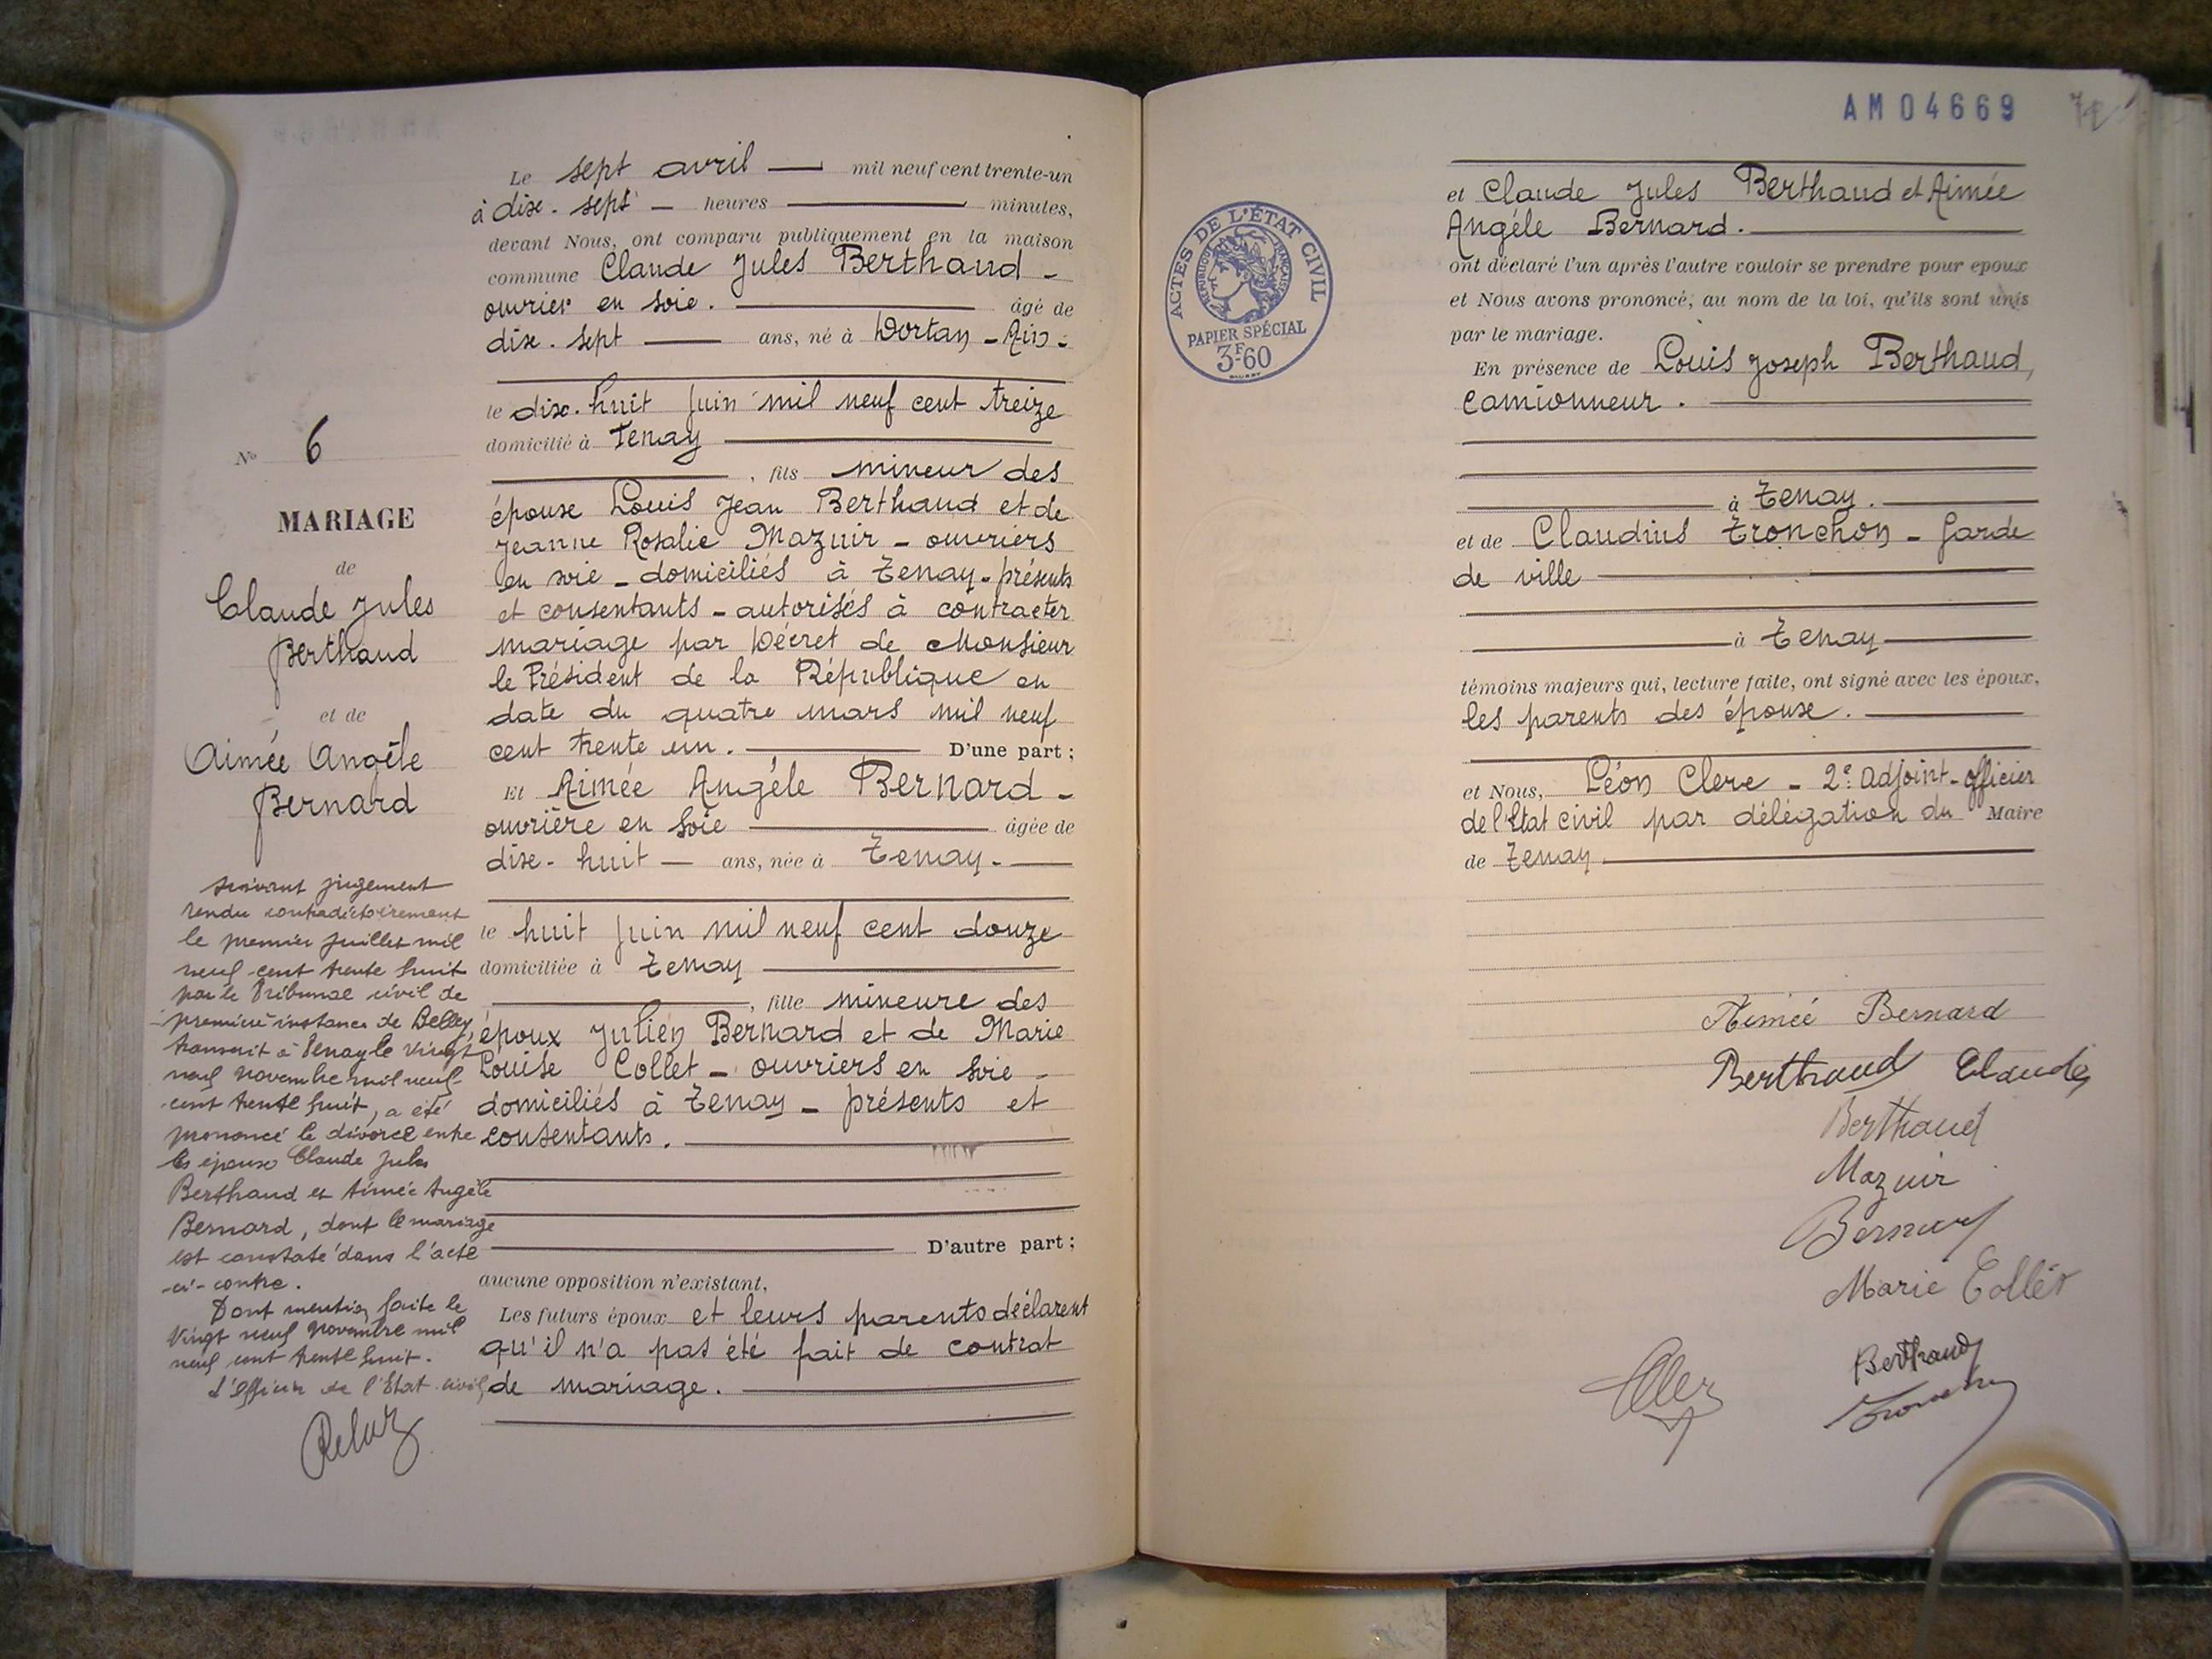 Le sept avril — mil neuf cent trente-un
à dix-sept — heures — minutes,
devant Nous, ont comparu publiquement en la maison
commune Claude Jules Berthaud -
ouvrier en soie. — âgé de
dix-sept — ans, né à Dortan - Ain -
le dix-huit juin mil neuf cent treize
domicilié à Tenay —
—, fils mineur des
époux Louis Jean Berthaud et de
Jeanne Rosalie Mazuir - ouvriers
en soie - domiciliés à Tenay - présents
et consentants - autorisés à contracter
mariage par Décret de Monsieur
le Président de la République en
date du quatre mars mil neuf
cent trente un. — D'une part ;
Et Aimée Angéle Bernard -
ouvrière en soie — âgée de
dix-huit — ans, née à Tenay. —
le huit juin mil neuf cent douze
domiciliée à Tenay —
—, fille mineure des
époux Julien Bernard et de Marie
Louise Collet - ouvriers en soie -
domiciliés à Tenay - présents et
consentants. —
— D'autre part ;
aucune opposition n'existant,
Les futurs époux et leurs parents déclarent
qu'il n'a pas été fait de contrat
de mariage. —
No 6
MARIAGE
de
Claude Jules
Berthaud
et de
Aimée Angèle
Bernard
suivant jugement
rendu contradictoirement
le premier juillet mil
neuf cent trente huit
par le Tribunal civil de
première instance de Belley,
transcrit à Tenay le vingt
neuf novembre mil neuf
cent trente huit, a été
prononcé le divorce entre
les époux Claude Jules
Berthaud et Aimée Angèle
Bernard, dont le mariage
est constaté dans l'acte
ci-contre.
Dont mention faite le
vingt neuf novembre mil
neuf cent trente huit.
L'Officier de l'Etat civil,
AM04669
72
ACTES DE L'ÉTAT CIVIL
RÉPUBLIQUE FRANÇAISE
PAPIER SPÉCIAL
3F60
et Claude Jules Berthaud et Aimée
Angéle Bernard. —
ont déclaré l'un après l'autre vouloir se prendre pour époux
et Nous avons prononcé, au nom de la loi, qu'ils sont unis
par le mariage.
En présence de Louis Joseph Berthaud,
camionneur. —
— à Tenay. —
et de Claudius Tronchon - garde
de ville —
— à Tenay —
témoins majeurs qui, lecture faite, ont signé avec les époux,
les parents des époux. —
et Nous, Léon Clerc - 2e adjoint - officier
de l'Etat civil par délégation du Maire
de Tenay —
Aimée Bernard
Berthaud Claude
Berthaud
Mazuir
Bernard
Marie Collet
Berthaud
Tronchon